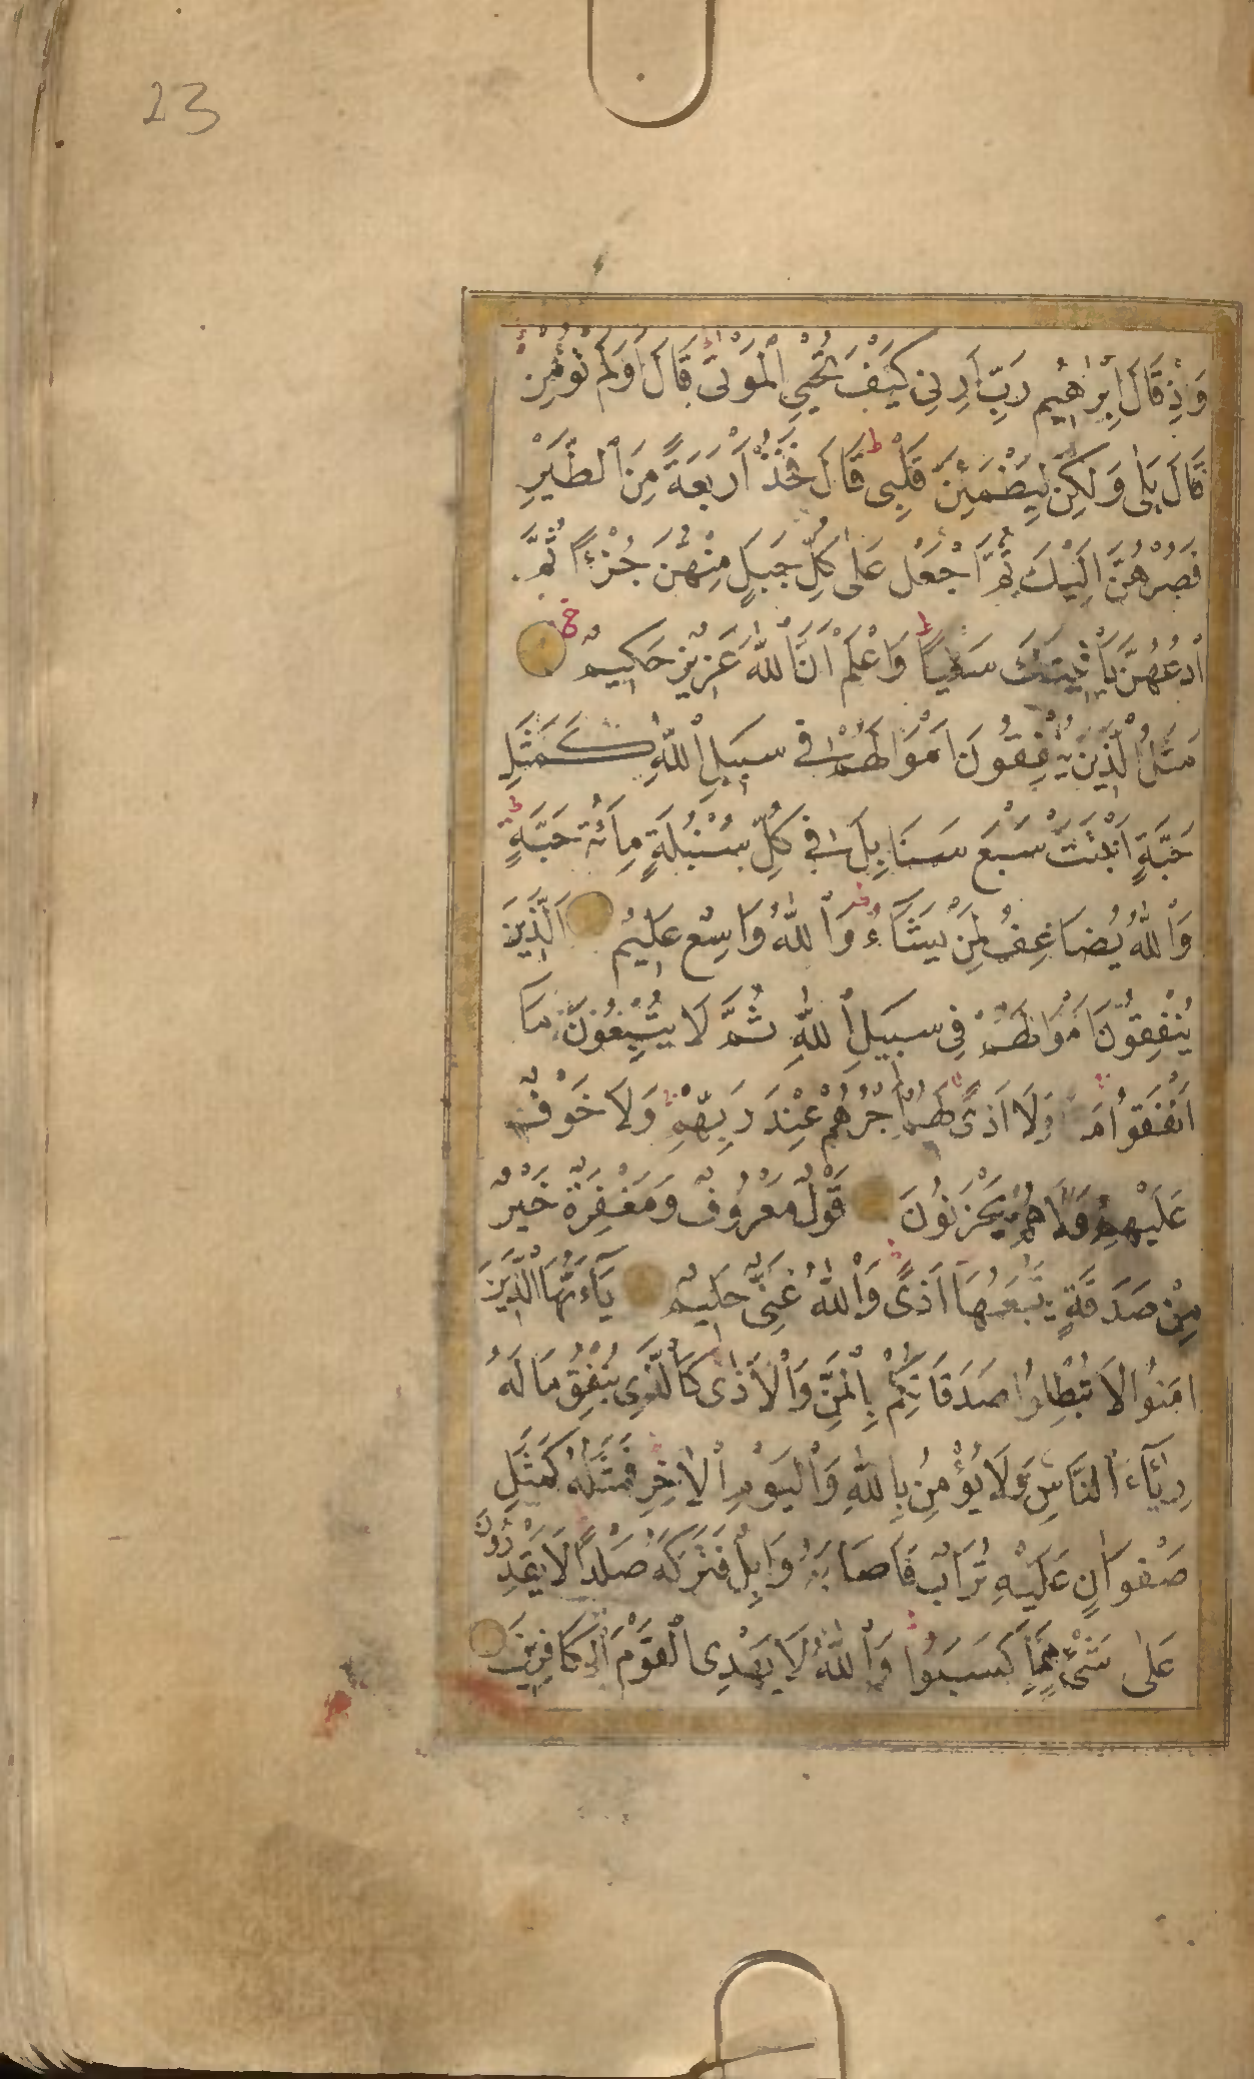 23
وَاِذْ قَالَ اِبْرٰهِيم رَبِّ اَرِنِى كَيْفَ تُحْيِى الْمَوْتٰى قَالَ اَوَلَمْ تُؤْمِنْ
قَالَ بَلٰى وَلٰكِنْ لِيَطْمَئِنَّ قَلْبِى قَالَ فَخُذْ اَرْبَعَةً مِنَ الطَّيْرِ
فَصُرْهُنَّ اِلَيْكَ ثُمَّ اجْعَلْ عَلٰى كُلِّ جَبَلٍ مِنْهُنَّ جُزْءًا ثُمَّ
ادْعُهُنَّ يَأْتِينَكَ سَعْيًا وَاعْلَمْ اَنَّ اللّٰهَ عَزِيزٌ حَكِيمٌ
مَثَلُ الَّذِينَ يُنْفِقُونَ اَمْوَالَهُمْ فِى سَبِيلِ اللّٰهِ كَمَثَلِ
حَبَّةٍ اَنْبَتَتْ سَبْعَ سَنَابِلَ فِى كُلِّ سُنْبُلَةٍ مِائَةُ حَبَّةٍ
وَاللّٰهُ يُضَاعِفُ لِمَنْ يَشَآءُ وَاللّٰهُ وَاسِعٌ عَلِيمٌ اَلَّذِينَ
يُنْفِقُونَ اَمْوَالَهُمْ فِى سَبِيلِ اللّٰهِ ثُمَّ لَا يُتْبِعُونَ مَا
اَنْفَقُوا مَ وَلَا اَذًى لَهُمْ اَجْرُهُمْ عِنْدَ رَبِّهِمْ وَلَا خَوْفٌ
عَلَيْهِمْ وَلَا هُمْ يَحْزَنُونَ قَوْلٌ مَعْرُوفٌ وَمَغْفِرَةٌ خَيْرٌ
مِنْ صَدَقَةٍ يَتْبَعُهَا اَذًى وَاللّٰهُ غَنِىٌّ حَلِيمٌ يَآءَيُّهَا الَّذِينَ
امَنُوا لَا تُبْطِلُوا صَدَقَاتِكُمْ بِالْمَنِّ وَالْاَذٰى كَالَّذِى يُنْفِقُ مَالَهُ
رِئَآءَ النَّاسِ وَلَا يُؤْمِنُ بِاللّٰهِ وَالْيَوْمِ الْاخِرِ فَمَثَلُهُ كَمَثَلِ
صَفْوَانٍ عَلَيْهِ تُرَابٌ فَاَصَابَهُ وَابِلٌ فَتَرَكَهُ صَلْدًا لَا يَقْدِرُونَ
عَلٰى شَىْءٍ مِمَّا كَسَبُوا وَاللّٰهُ لَا يَهْدِى الْقَوْمَ الْكَافِرِينَ